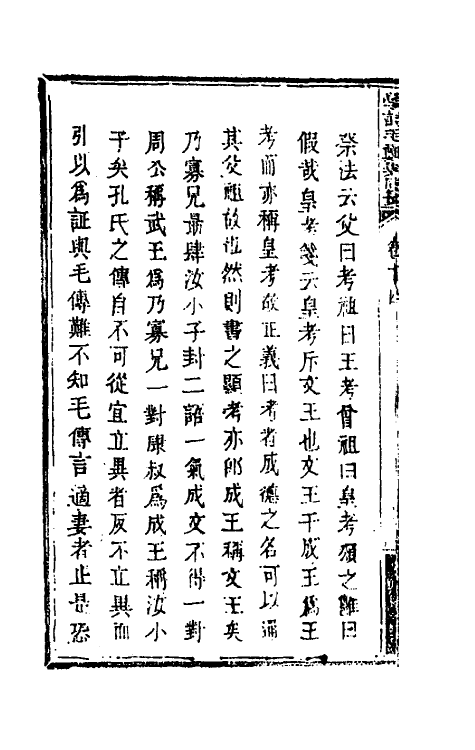 祭法云父曰考祖曰王考曾祖曰皇考頌之雝曰
假哉皇考箋云皇考斥文王也文王于成王爲王
考而亦稱皇考故正義曰考者成德之名可以通
其父祖故也然則書之顯考亦卽成王稱文王矣
乃寡兄勗肆汝小子封二語一氣成文不得一對
周公稱武王爲乃寡兄一對康叔爲成王稱汝小
子矣孔氏之傳自不可從宜立異者反不立異而
引以爲証與毛傳難不知毛傳言適妻者止是恐